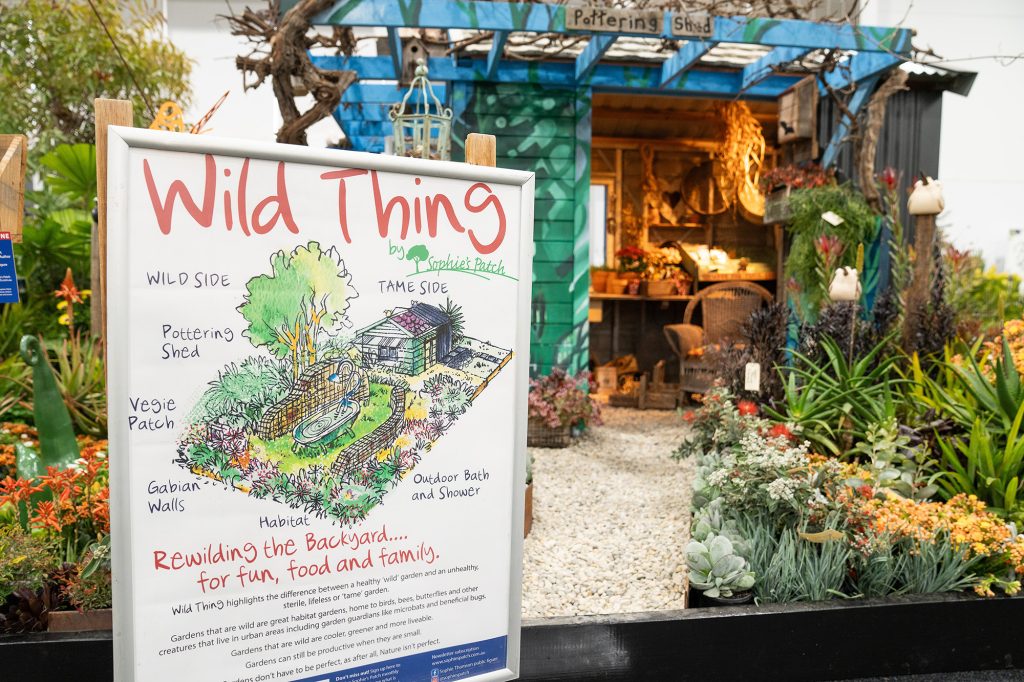 Pottering Shed
Wild Thing
by Sophie's Patch
WILD SIDE
TAME SIDE
Pottering
Shed
Vegie
Patch
Gabian
Walls
Habitat
Outdoor Bath
and Shower
Rewilding the Backyard....
for fun, food and family.
Wild Thing highlights the difference between a healthy 'wild' garden and an unhealthy,
sterile, lifeless or 'tame' garden.
Gardens that are wild are great habitat gardens, home to birds, bees, butterflies and other
creatures that live in urban areas including garden guardians like microbats and beneficial bugs.
Gardens that are wild are cooler, greener and more liveable.
Gardens can still be productive when they are small.
Gardens don't have to be perfect, as after all, Nature isn't perfect.
Don't miss out! Sign up here to
Sophie's Patch monthly
Newsletter subscription
www.sophiespatch.com.au
Sophie Thomson public figure